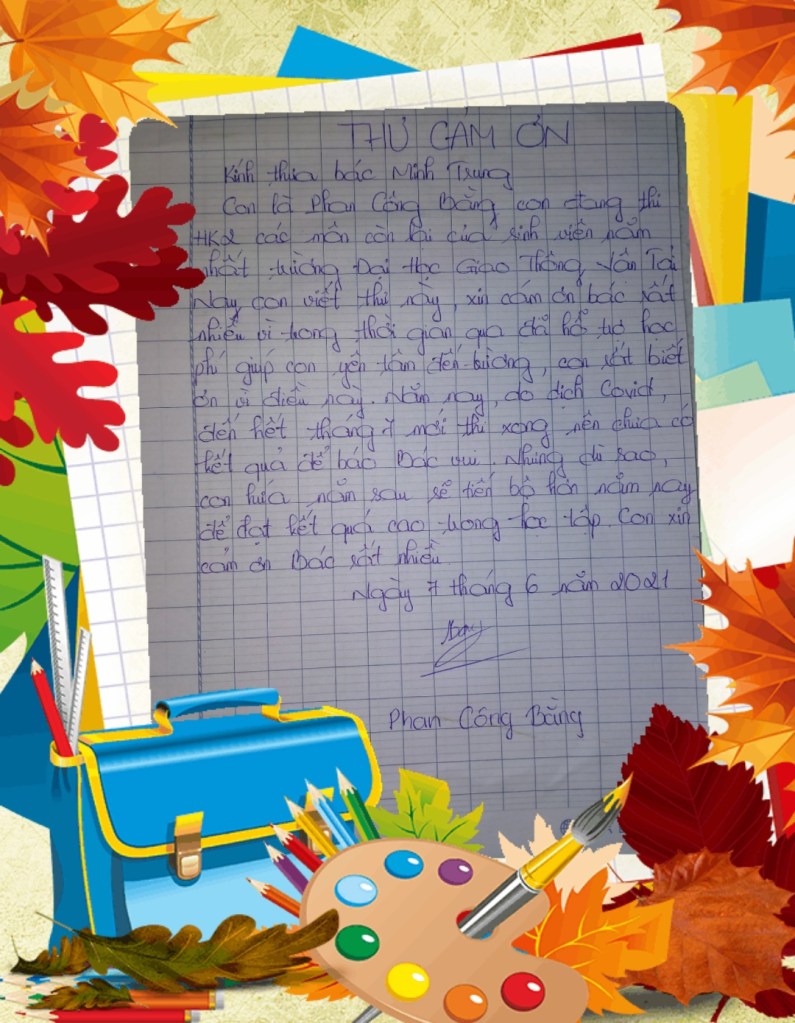 THƯ CẢM ƠN
Kính thưa bác Minh Trung
Con là Phan Công Bằng con đang thi
HK2 các môn còn lại của sinh viên năm
nhất trường Đại Học Giao Thông Vân Tải
Nay con viết thư này, xin cám ơn bác rất
nhiều vì trong thời gian qua đã hổ trợ học
phí giúp con yên tâm đến trường, con rất biết
ơn vì điều này. Năm nay, do dịch Covid,
đến hết tháng 7 mới thi xong nên chưa có
kết quả để báo Bác vui. Nhưng dù sao,
con hứa năm sau sẽ tiến bộ hơn năm nay
để đạt kết quả cao trong học tập. Con xin
cảm ơn Bác rất nhiều.
Ngày 7 tháng 6 năm 2021
Phan Công Bằng